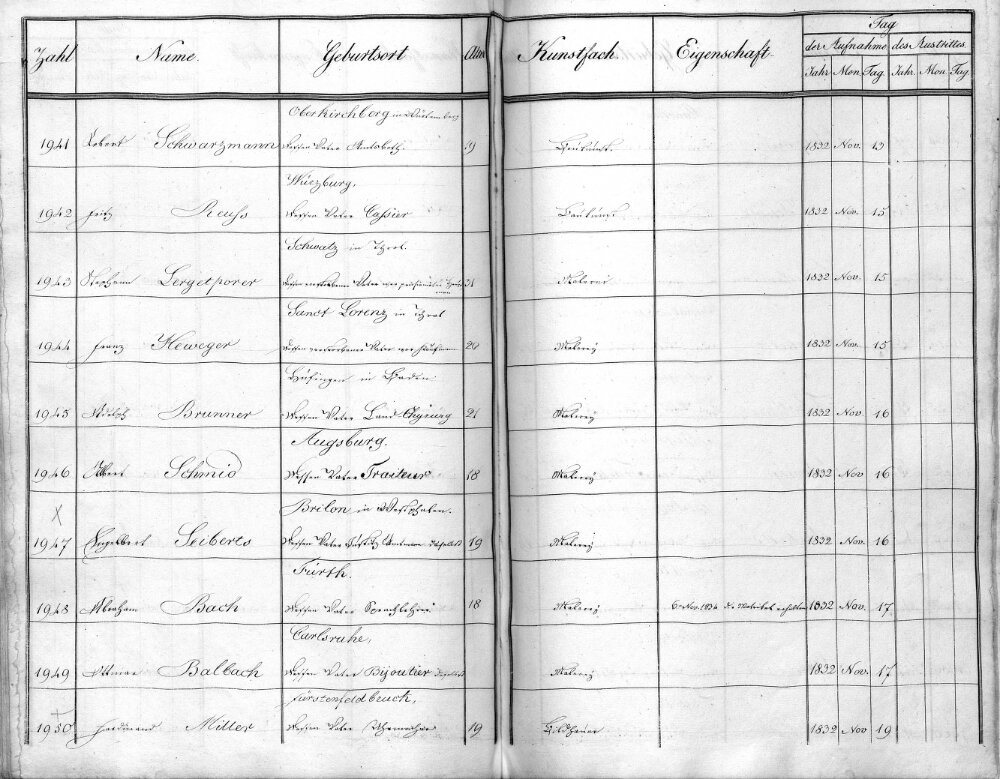 Zahl Name. Geburtsort Alter Kunstfach. Eigenschaft. Tag
der Aufnahme des Austrittes
Jahr Mon. Tag Jahr. Mon. Tag.
Oberkirchberg in
1941 Schwarzmann dessen Vater 19 Baukunst. 1832 Nov. 13
Würzburg.
1942 Fritz Reuss dessen Vater Cassier Baukunst 1832 Nov. 15
Schwatz in Tyrol.
1943 Stephann Lergetporer dessen verstorbener Vater war 31 Malerei 1832 Nov. 15
Sanct Lorenz in Tyrol
1944 Franz Heweger dessen verstorbener Vater war 20 Malerey 1832 Nov. 15
Hüfingen in Baden
1945 Adolph Brunner dessen Vater Land Chyrurg 21 Malerey 1832 Nov. 16
Augsburg.
1946 Albert Schmid dessen Vater Traiteur 18 Malerey 1832 Nov 16
X
Brilon in Westphalen.
1947 Engelbert Seiberts dessen Vater Justiz Amtmann daselbst 19 Malerey 1832 Nov. 16
Fürth.
1948 Abraham Bach dessen Vater Sprachlehrer 18 Malerey 6 Nov. 1834 die Matrikel erhalten 1832 Nov. 17
Carlsruhe,
1949 Ottmar Balbach dessen Vater Bijoutier daselbst Malerey 1832 Nov. 17
Fürstenfeldbruck,
1950 Ferdinand Miller dessen Vater Uhrmacher 19 Bildhauer 1832 Nov 19